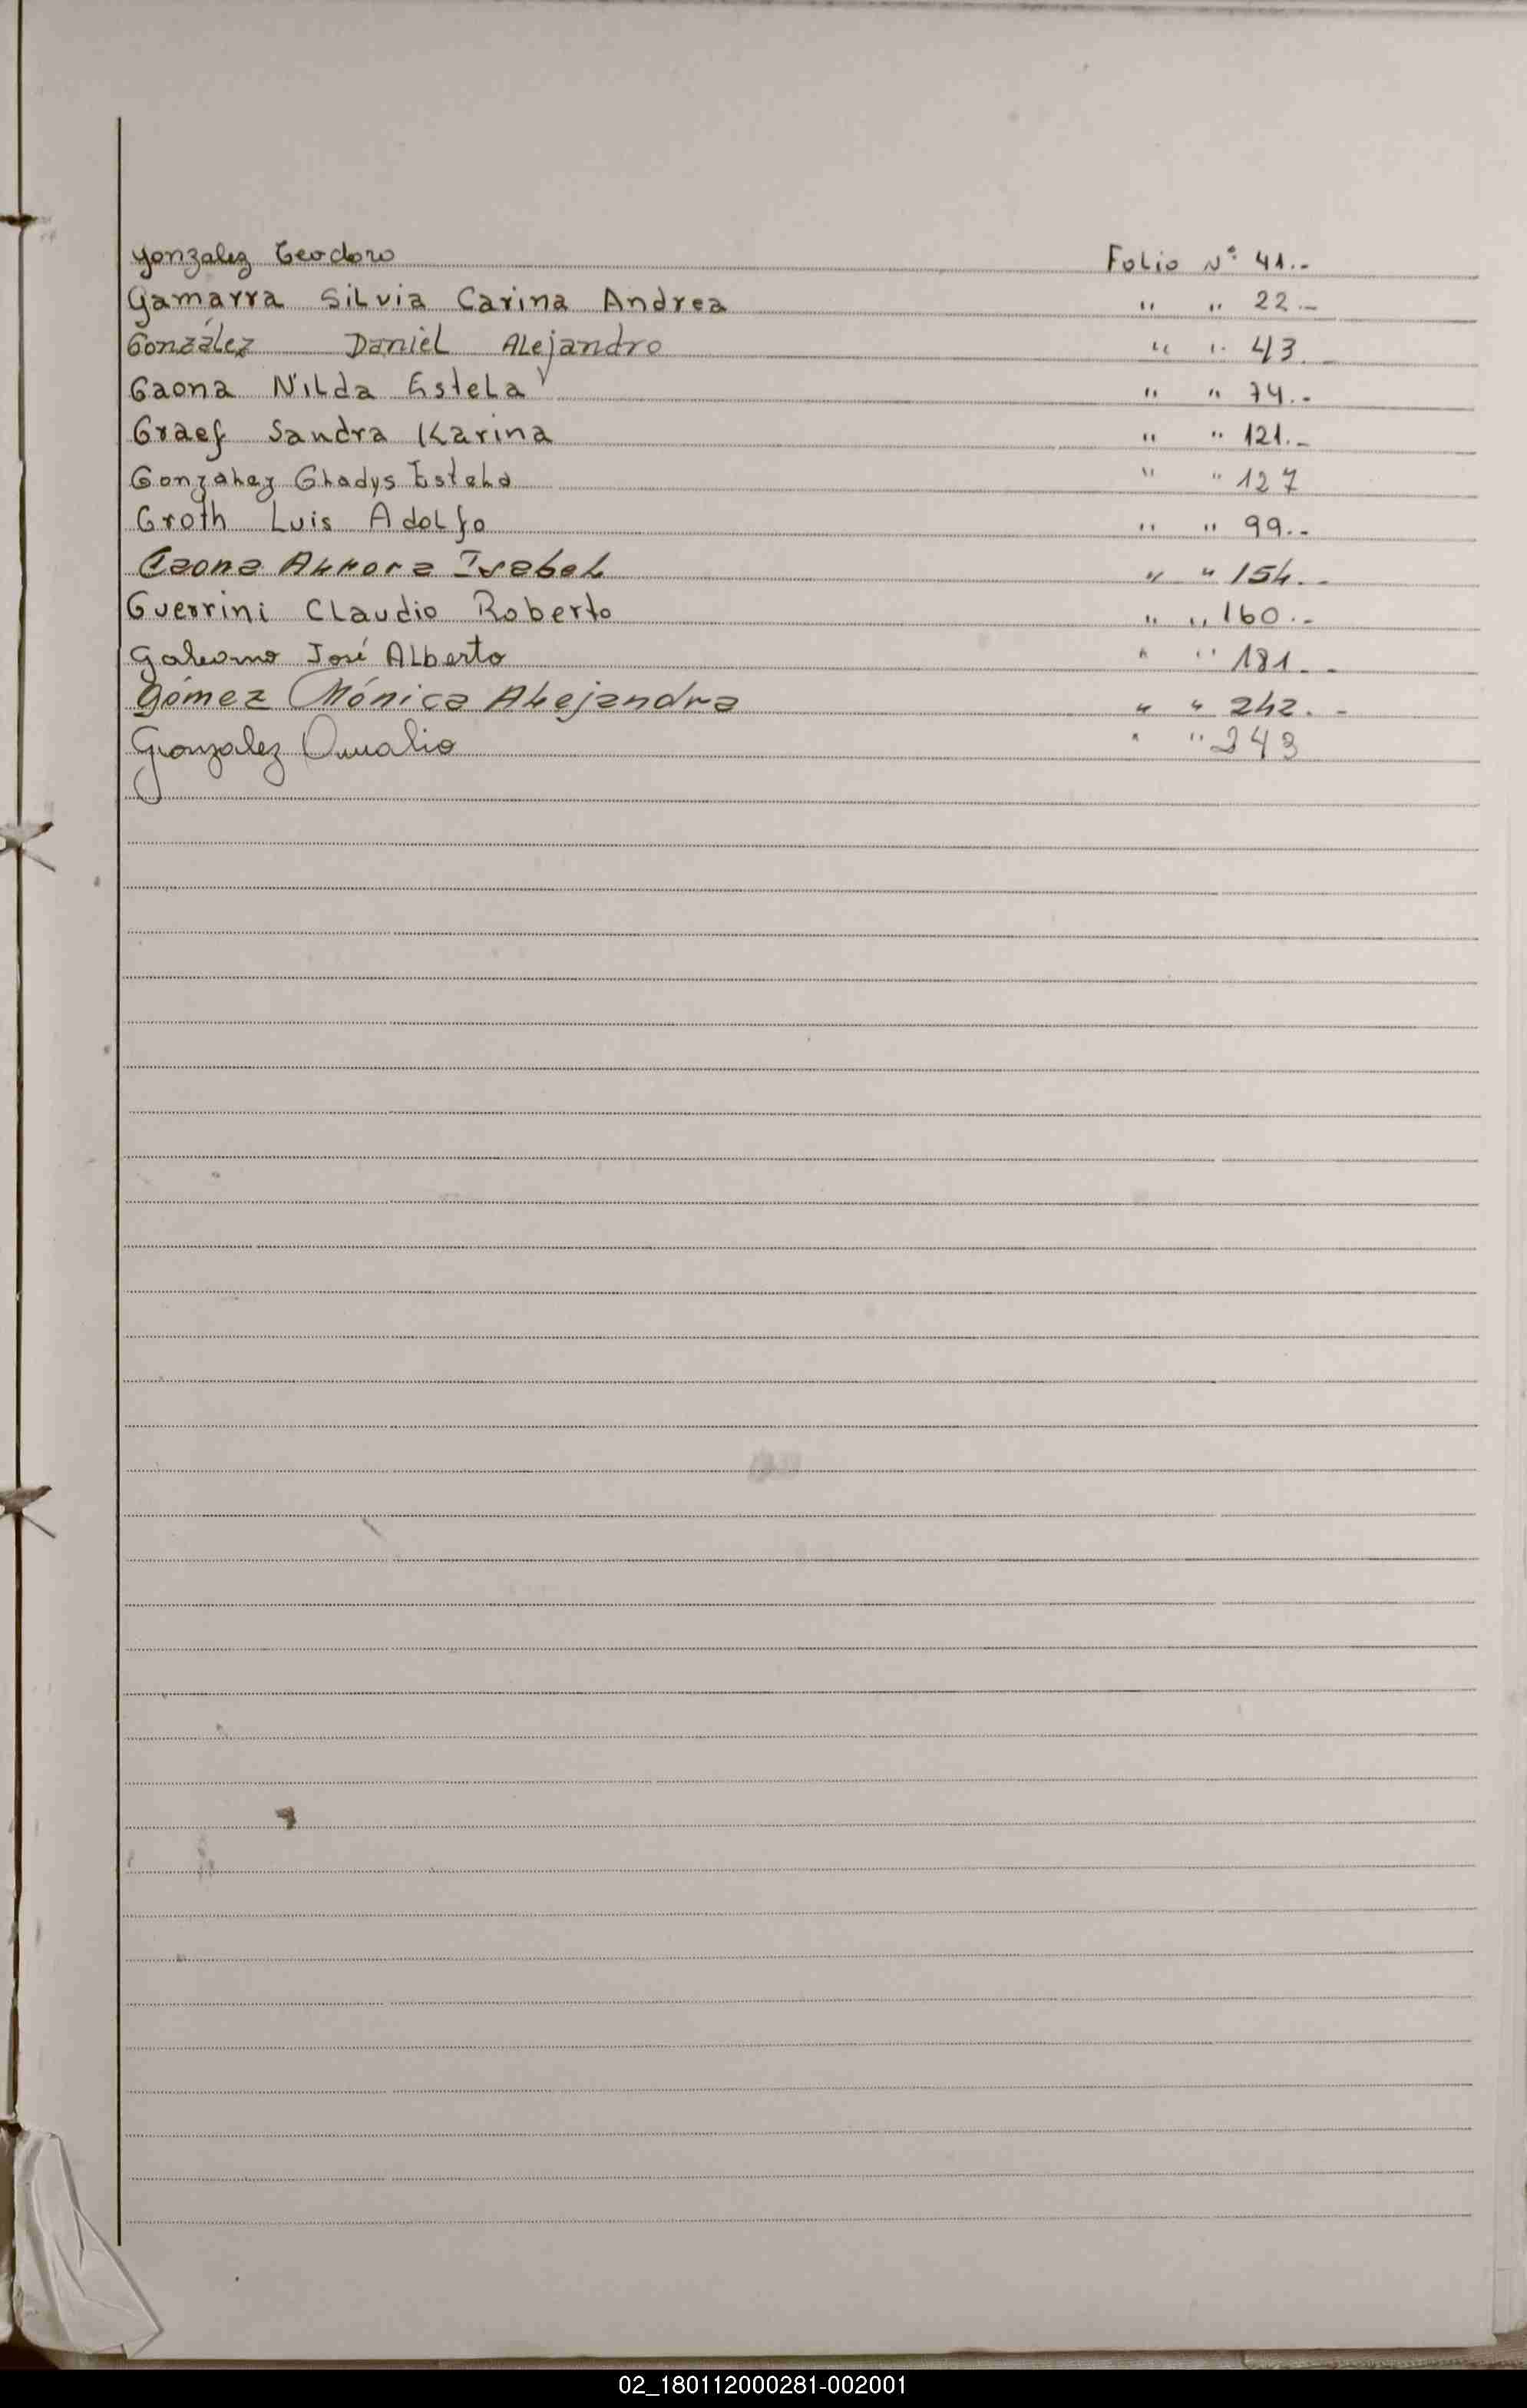 Gonzalez Teodoro Folio Nº 41.-
Gamarra Silvia Carina Andrea " " 22.-
González Daniel Alejandro " " 43.-
Gaona Nilda Estela " " 74.-
Graef Sandra Karina " " 121.-
Gonzalez Gladys Estela " " 127
Groth Luis Adolfo " " 99.-
Gaona Aurora Isabel " " 154.-
Guerrini Claudio Roberto " " 160.-
Galeano José Alberto " " 181.-
Gómez Mónica Alejandra " " 242.-
Gonzalez Amalio " " 243
02_180112000281-002001